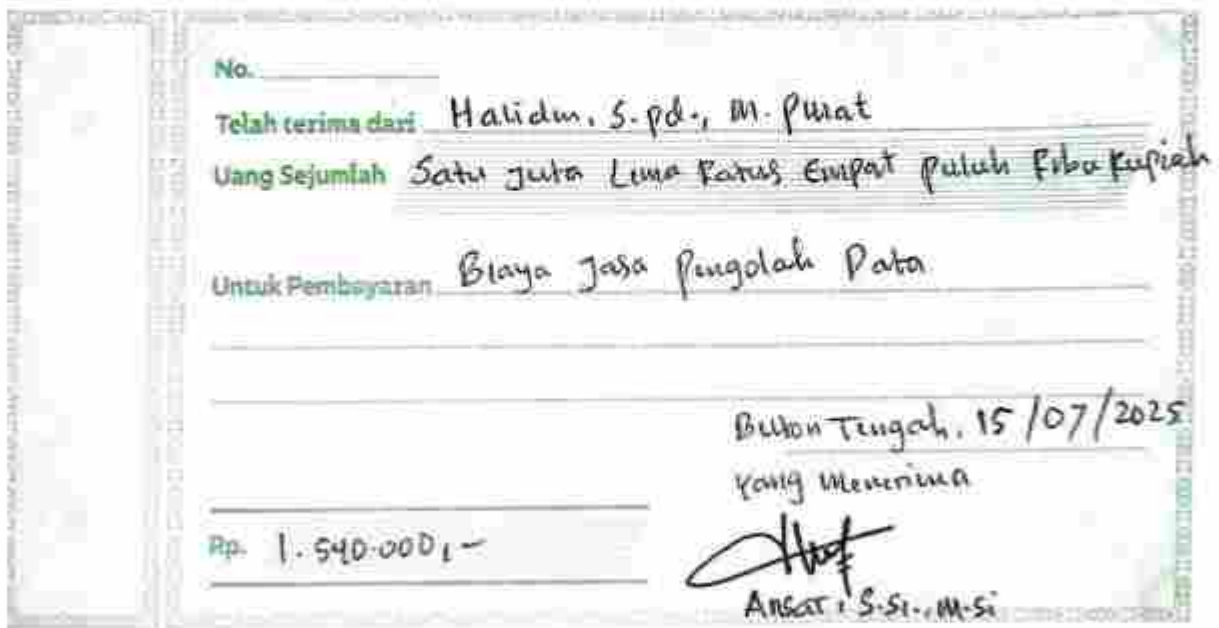 No.
Telah terima dari Halidin, S.Pd., M.
Uang Sejumlah Satu Juta Lima Ratus Empat Puluh Ribu Rupiah
Untuk Pembayaran Biaya Jasa Pengolah Data
Buton Tengah, 15/07/2025
Yang Menerima
Rp. 1.540.000,-
Ansar, S.Si., M.Si